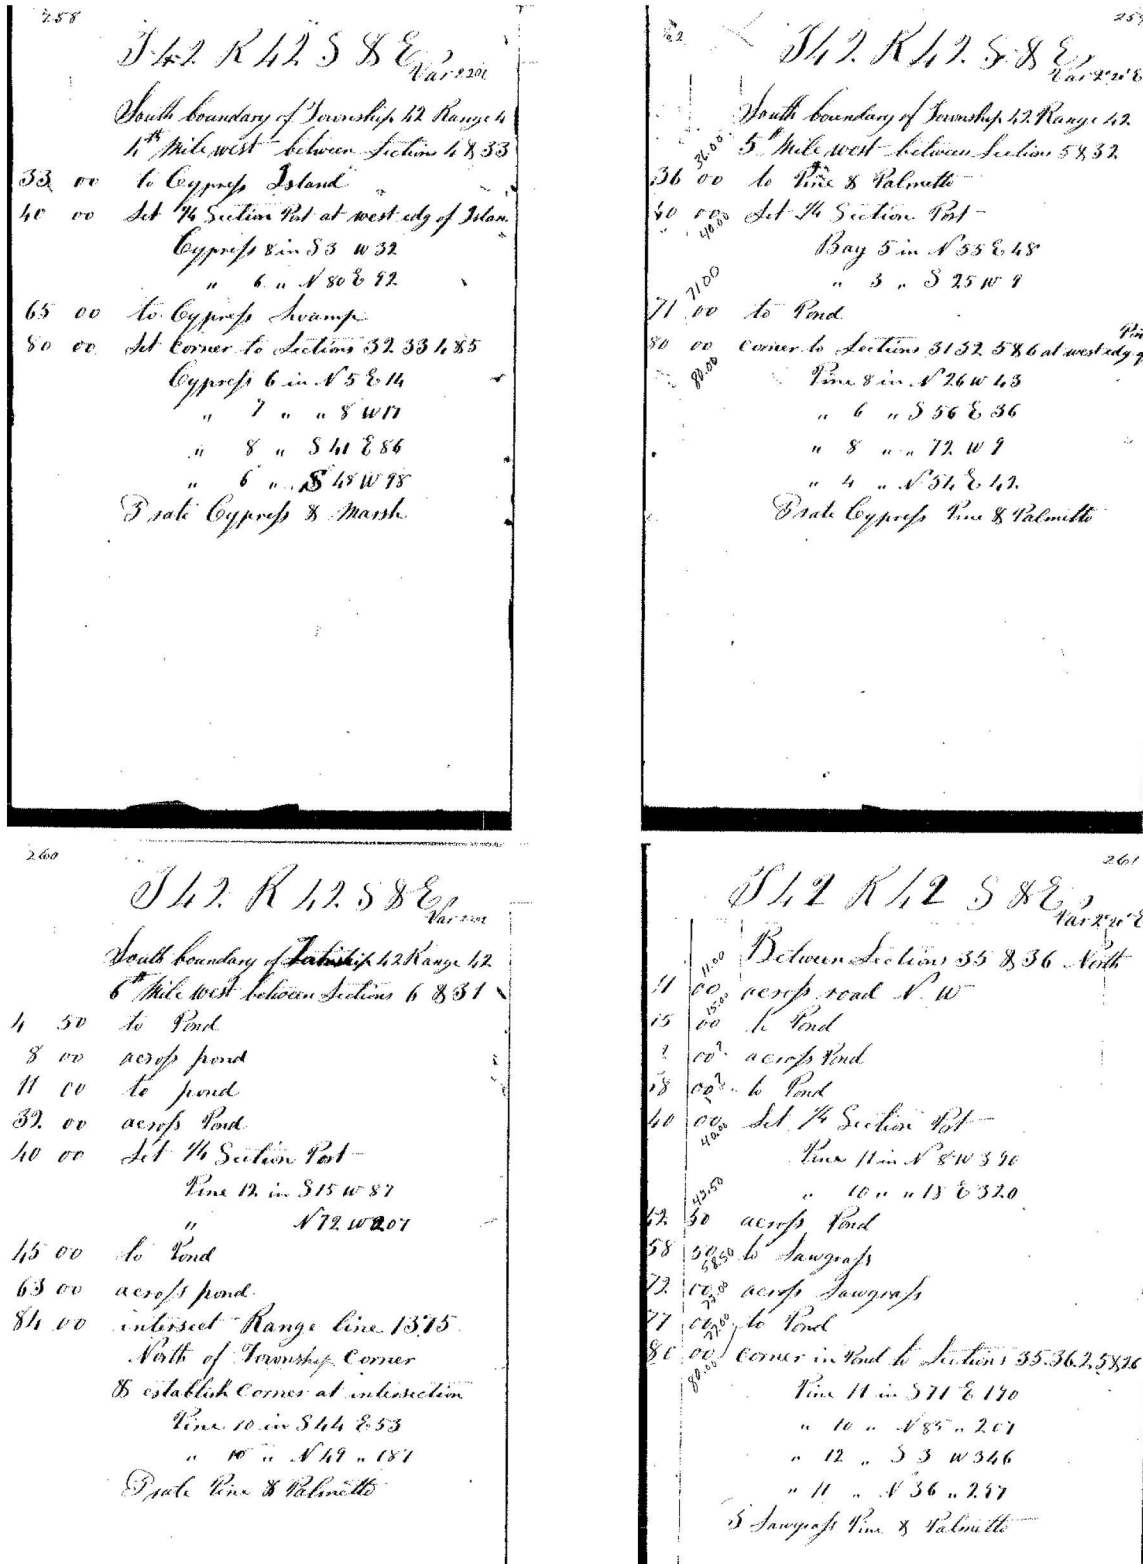 258
T 42 R 42 S & E
Var 2 20E
South boundary of Township 42 Range 4
4th Mile west between Sections 4 & 33
33 00 to Cypress Island
40 00 Set 1/4 Section Post at west edg of Islan
Cypress 8 in S 3 W 32
" 6 " N 80 E 92
65 00 to Cypress Swamp
80 00 Set Corner to Sections 32 33 4 & 5
Cypress 6 in N 5 E 14
" 7 " " 8 W 17
" 8 " S 41 E 86
" 6 " S 48 W 98
3 rate Cypress & Marsh
259
T 42. R 42. S & E
Var 2° 20' E
South boundary of Township 42 Range 42
5th Mile west between Sections 5 & 32
36.00
36 00 to Pine & Palmetto
40 00 Set 1/4 Section Post
40.00
Bay 5 in N 55 E 48
" 3 " S 25 W 9
71 00
71 00 to Pond
80 00 corner to Sections 31 32 5 & 6 at west edg of Pin
80.00
Pine 8 in N 26 W 43
" 6 " S 56 E 36
" 8 " " 72 W 9
" 4 " N 54 E 42
3 rate Cypress Pine & Palmetto
260
T 42. R 42 S & E
Var
South boundary of Township 42 Range 42
6th Mile west between Sections 6 & 31
4 50 to Pond
8 00 across pond
11 00 to pond
39 00 across Pond
40 00 Set 1/4 Section Post
Pine 12 in S 15 W 87
" N 72 W 207
45 00 to Pond
63 00 across pond
84 00 intersect Range line 13.75
North of Township Corner
& establish Corner at intersection
Pine 10 in S 44 E 53
" 10 " N 49 " 187
3 rate Pine & Palmetto
261
T 42 R 42 S & E
Var 2° 20' E
Between Sections 35 & 36 North
11.00
11 00 across road N. W
15.00
15 00 to Pond
00? across Pond
18 00? to Pond
40 00 Set 1/4 Section Post
40.00
Pine 11 in N 8 W 390
" 10 " " 18 E 320
42.50
42 50 across Pond
58 50 to Sawgrass
58.50
72 00 across Sawgrass
72.00
77 00 to Pond
77.00
80 00 Corner in Pond to Sections 35.36.25 & 26
80.00
Pine 11 in S 71 E 190
" 10 " N 85 " 207
" 12 " S 3 W 346
" 11 " N 36 " 297
3 Sawgrass Pine & Palmetto